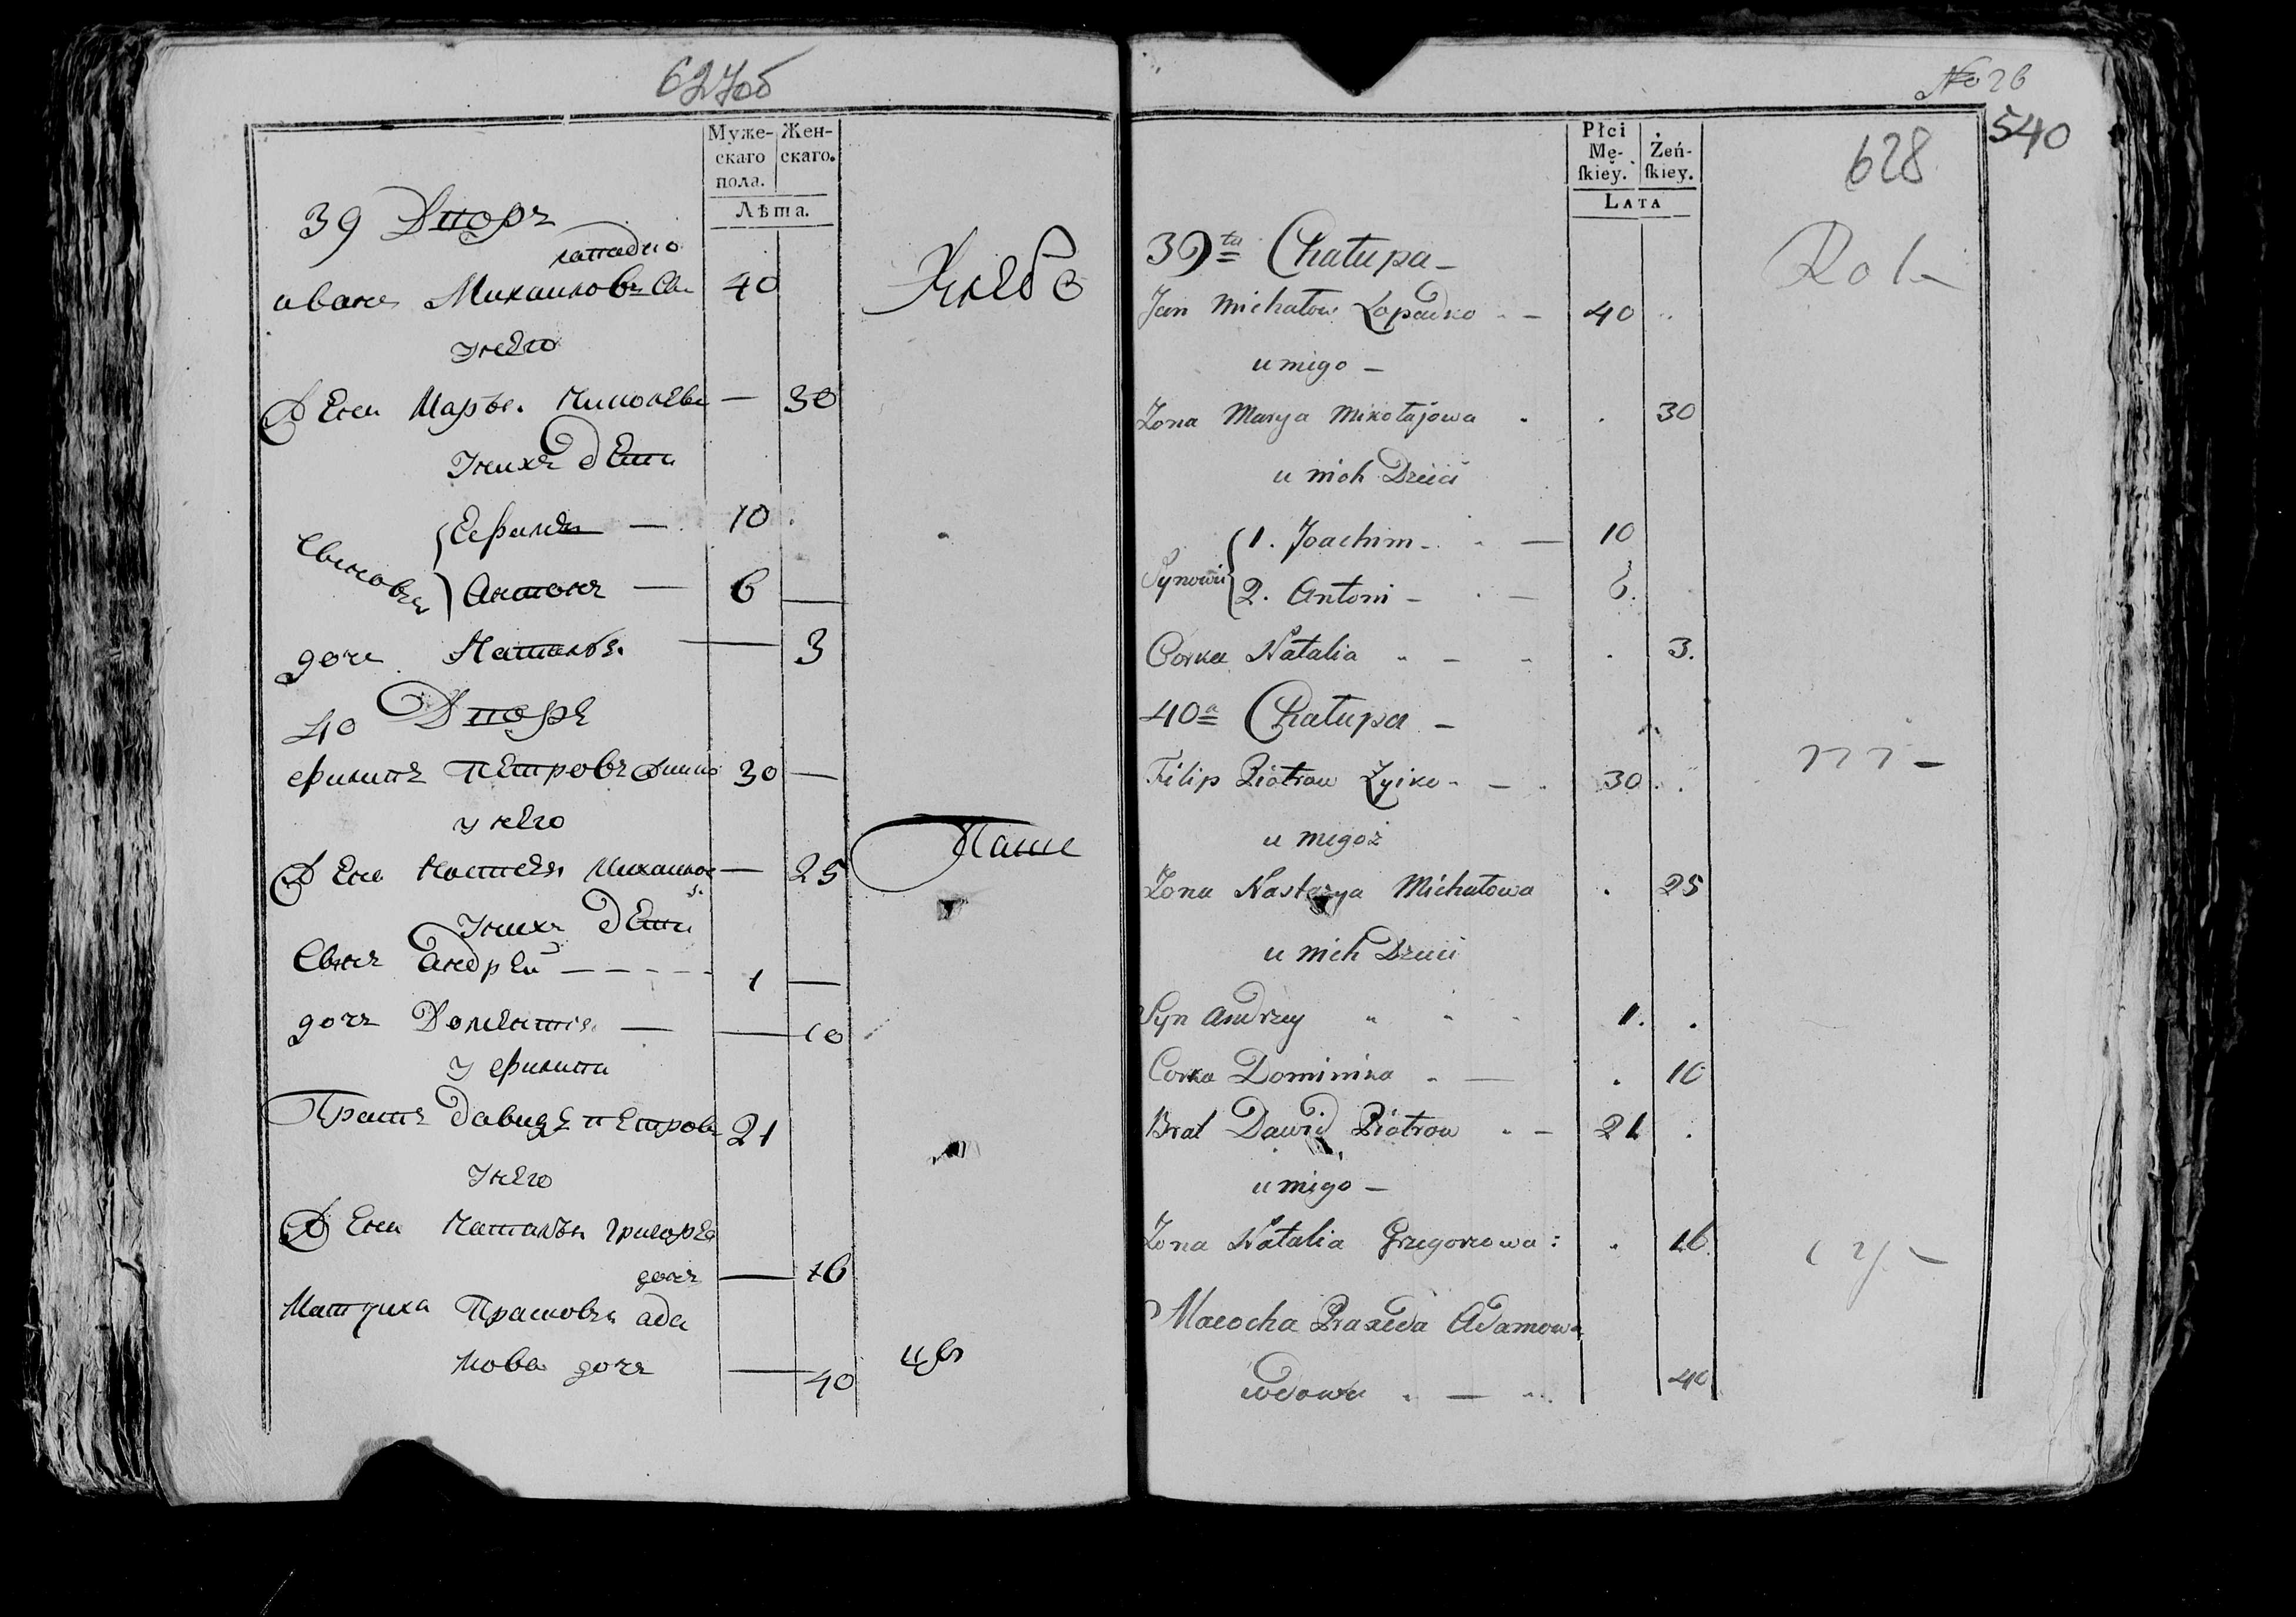 627об
Муже-
скаго
пола.
Жен-
скаго.
Лѣта.
39 Дворъ
Иванъ Михаиловъ 40
Лападко
У него
Жена Марья Николаева — 30
У нихъ дети
Сыновья
Ефимъ — 10
Антонъ — 6 —
дочь Наталья — 3
40 Дворъ
Филипъ Петровъ 30 —
у него
Жена Настасья Михаилов — 25
У нихъ дети
Сынъ Андрей — — — — 1 —
дочь — — 10
у Филипа
Братъ Давидъ Петровъ 21
У него
Жена Наталья Григорьева
дочь — 16
Мачиха Прасковья Ада
мова дочь — 40
Хлебо
Паше
No 26
540
628
Płci
Mę-
ſkiey.
Żeń-
ſkiey.
Lata
39ta Chałupa —
Jan Michałow Łopadko — 40
u niego —
Żona Marya Mikołajowa . . 30
u nich Dzieci
Synowie
1. Joachim — 10
2. Antoni — 6.
Corka Natalia — . 3.
40a Chałupa —
Filip Piotrow Żyiko — 30 .
u niegoż
Żona Nastazya Michałowa . 25
u nich Dzieci
Syn Andrzey 1. .
Corka Dominika . — . 10
Brat Dawid Piotrow — 21 .
u niego —
Żona Natalia Grzegorzowa : . 16
Macocha Praxeda Adamowa
wdowa . — 40
Rola